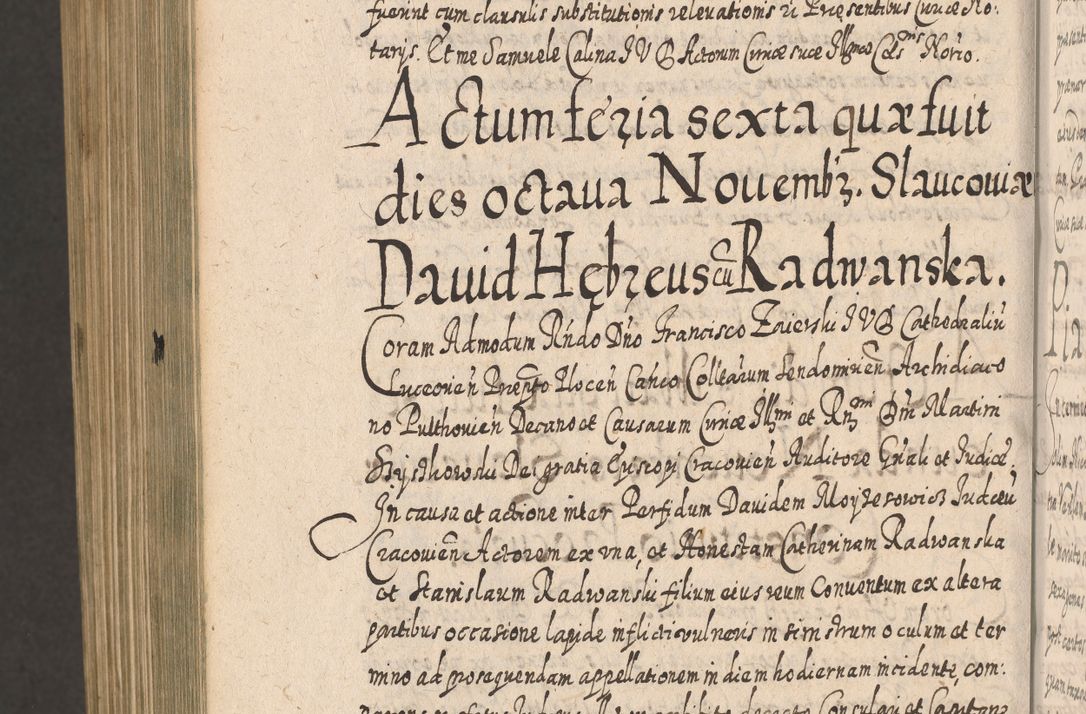 fuerint cum clausulis substitutionis relevationis et Presentibus Curiæ No:
tarijs. Et me Samuele Calina J V D Actorum Curiæ suæ Illmæ Celsnis Notrio.
Actum feria sexta quæ fuit
dies octaua Nouembz. Slaucouiæ
Dauid Hębreus cū Radwanska.
Coram Admodum Rndo Dno Francisco Zaierski J V D Cathedraliū
Luceorień Prepto Plocen Canco Colltarum Sendomirień Archidiaco
no Pulthouień Decano et Causarum Curiæ Illmi et Rmi Dni Martini
Szyszkowski Dei gratia Episcopi Cracouień Auditore Gnali et Iudice.
In causa et actione inter Perfidum Dauidem Moyzesowicz Iudæū
Cracouień Actorem ex vna, et Honestam Catherinam Radwanska
et Stanislaum Radwanski filium eius reum Conuentum ex altera
partibus occasione lapide inflicti vulneris in sinistrum oculum et ter
mino ad prosequendam appellationem in diem hodiernam incidente, com: